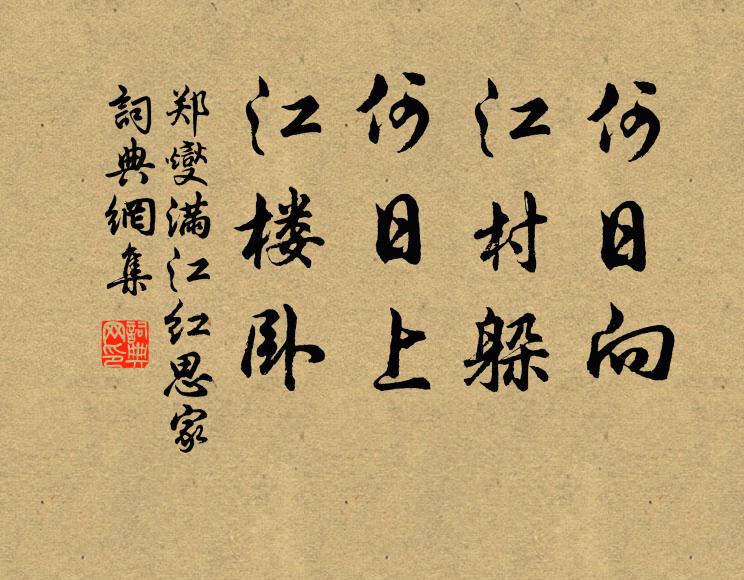 何日向
江村躲
何日上
江楼卧
郑燮满江红思家
詞典網集
詞典
网印